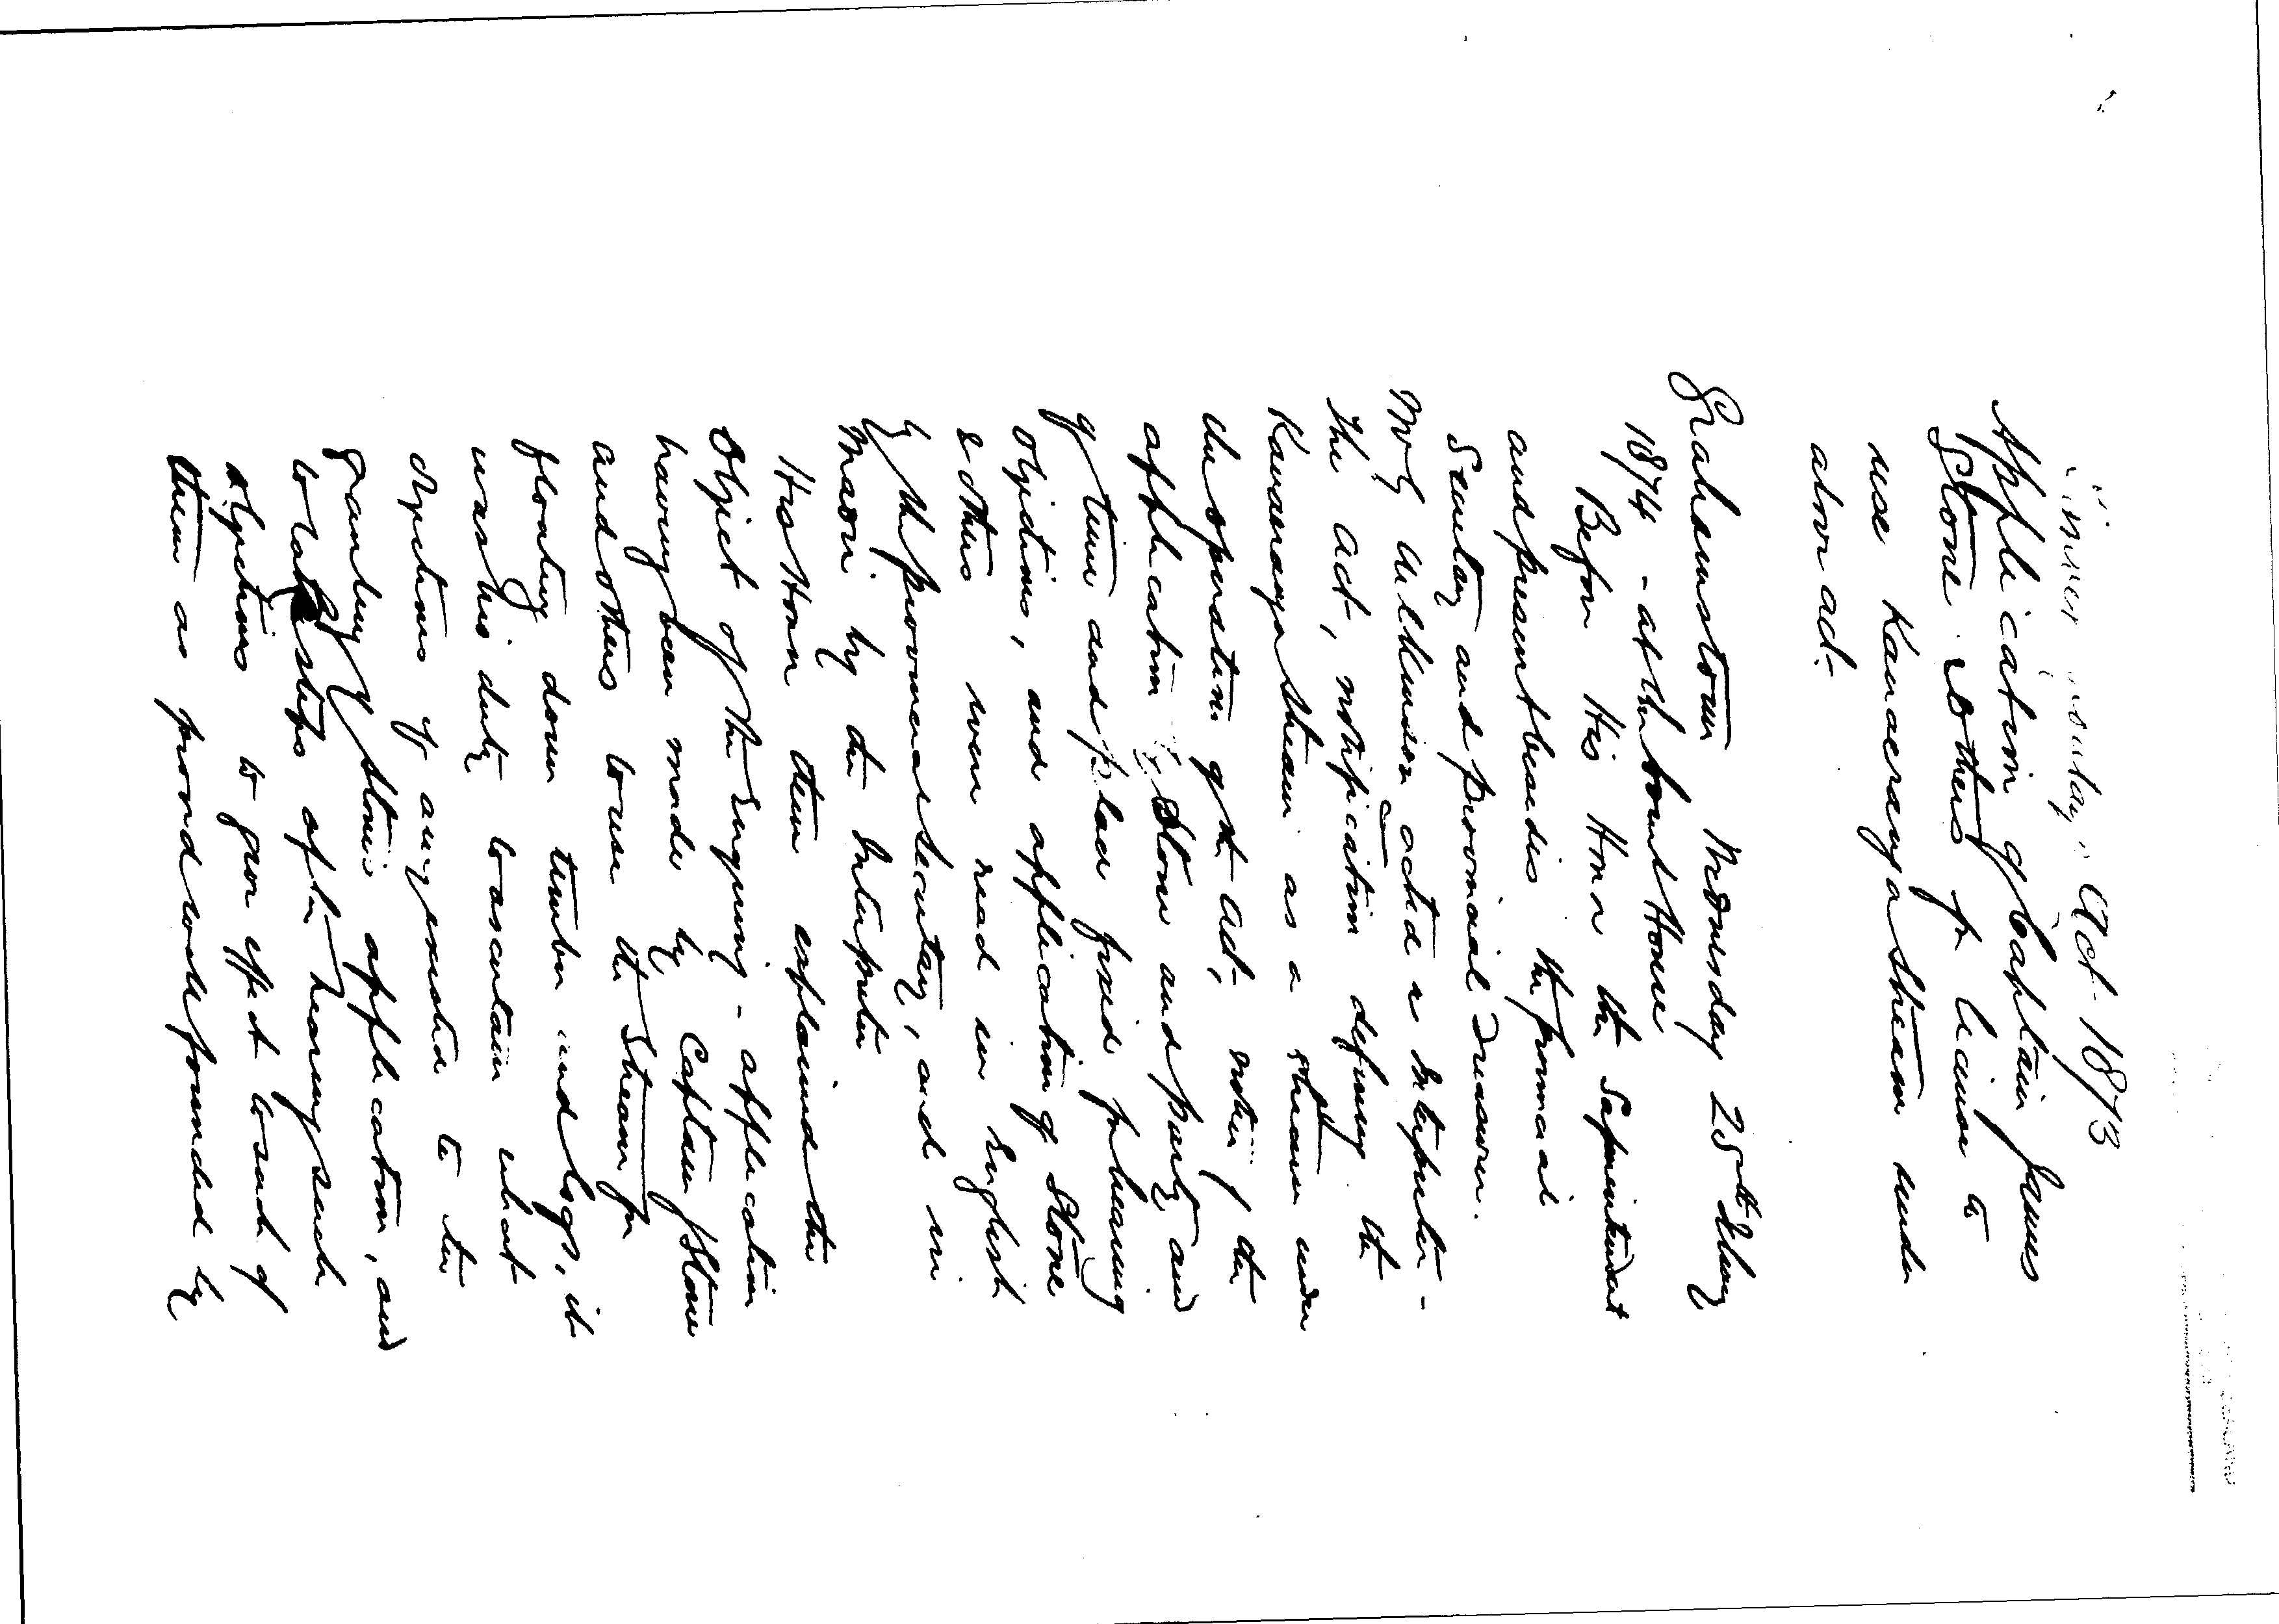 Timber floatage Act 1873
Application of Captain James
Stone & others for license to
use Kauaeranga Stream under
above act.
Grahamstown Wednesday 25th Feby
1874 - at the Court House
Before His Honor the Superintendent
and present besides the Provincial
Secretary and Provincial Treasurer.
Mr Wilkinson acted as Interpreter -
The Act, notification defining the
Kauaeranga Stream as a stream under
the operation of the Act, notice of the
application by Stone and party, and
of time and place fixed for hearing
objections, and application of Stone
& others were read in English
by the Provincial Secretary, and in
Maori by the Interpreter
His Honor then explained the
object of the Enquiry - application
having been made by Captain Stone
and others to use the Stream for
floating down timber and logs, it
was his duty to ascertain what
objections if any existed to the
granting of Stone's application, and
to take steps after hearing such
objections to give effect to such of
them as proved well founded by